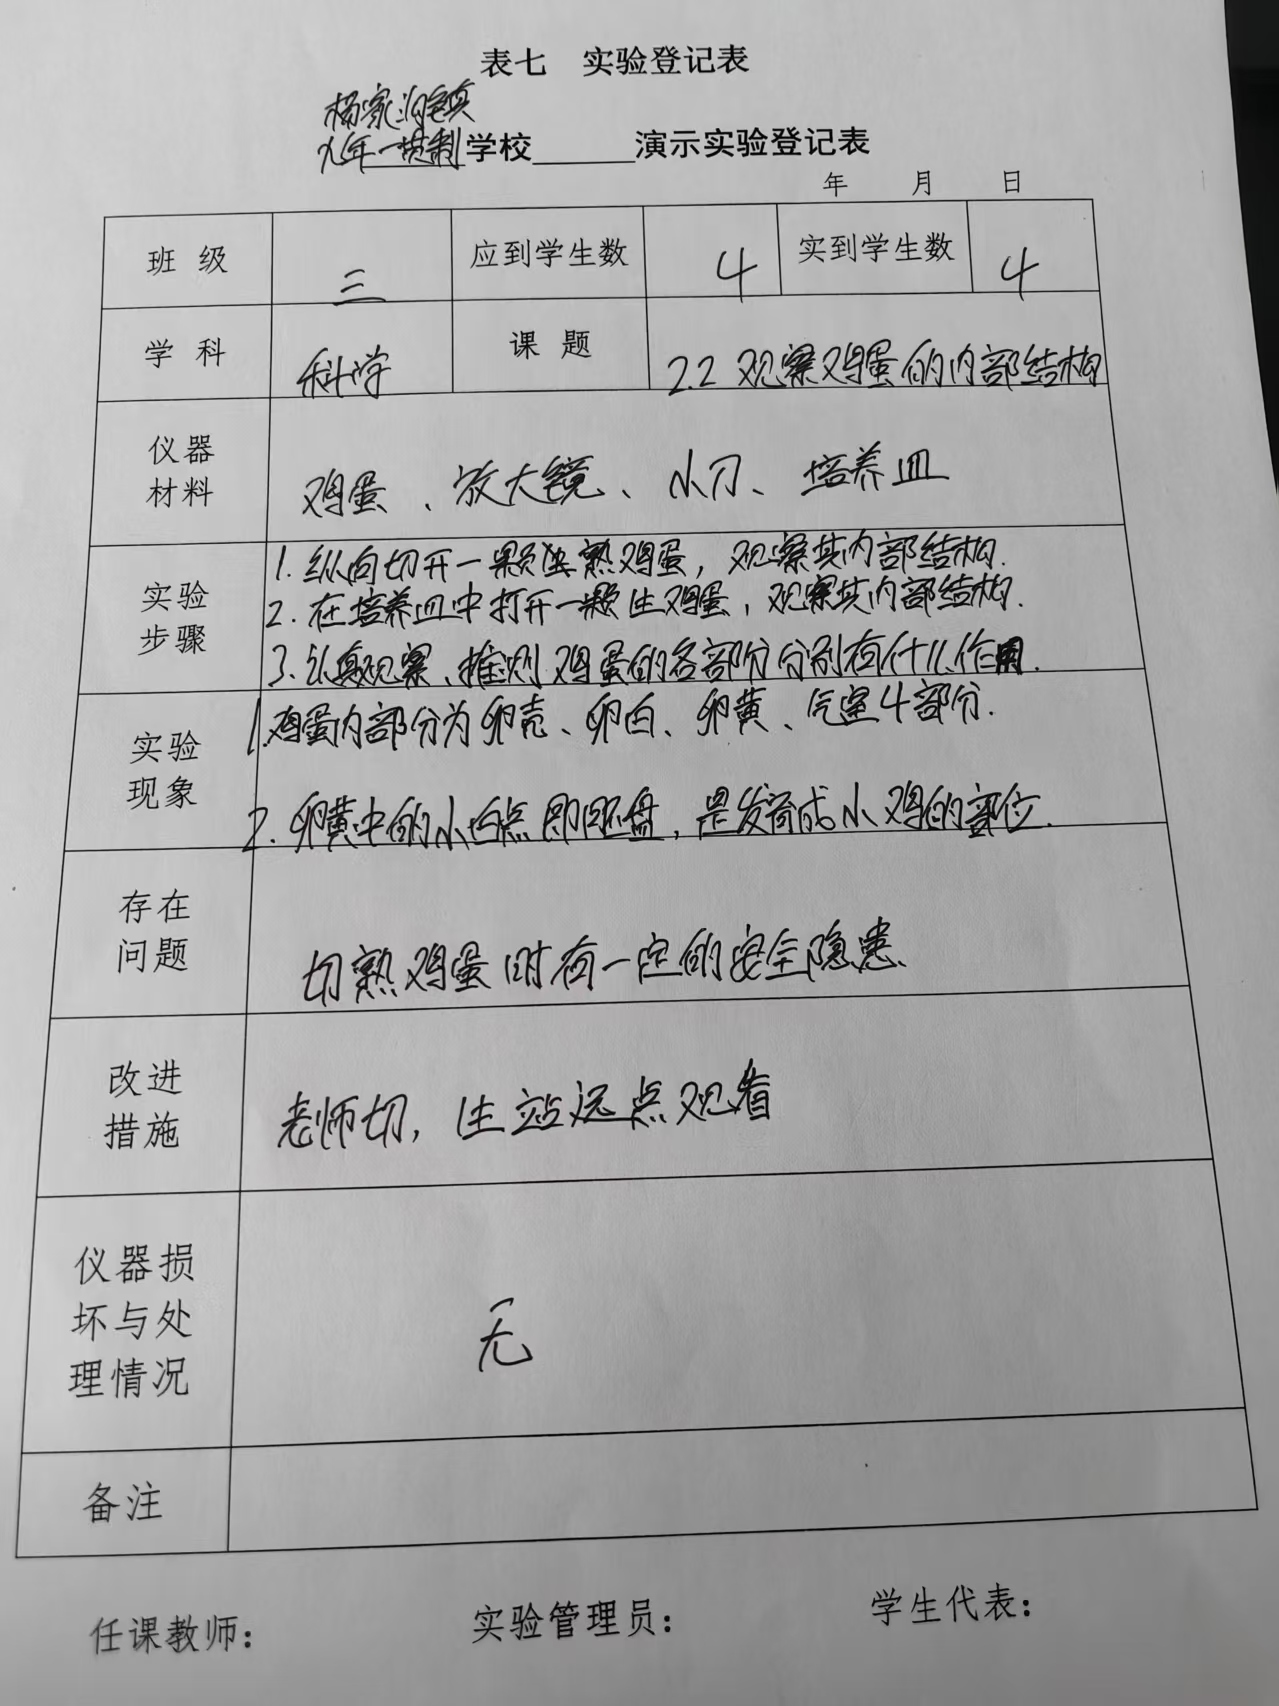 表七 实验登记表
杨家沟镇
九年一贯制学校______演示实验登记表
年 月 日
班 级 三 应到学生数 4 实到学生数 4
学 科 科学 课 题 2.2 观察鸡蛋的内部结构
仪器
材料
鸡蛋、放大镜、小刀、培养皿
实验
步骤
1.纵向切开一颗煮熟鸡蛋,观察其内部结构.
2.在培养皿中打开一颗生鸡蛋,观察其内部结构.
3.认真观察、推测鸡蛋的各部分分别有什么作用.
实验
现象
1.鸡蛋内部分为卵壳、卵白、卵黄、气室4部分.
2.卵黄中的小白点即胚盘,是发育成小鸡的部位.
存在
问题
切熟鸡蛋时有一定的安全隐患
改进
措施
老师切,生站远点观看
仪器损
坏与处
理情况
无
备注
任课教师: 实验管理员: 学生代表: